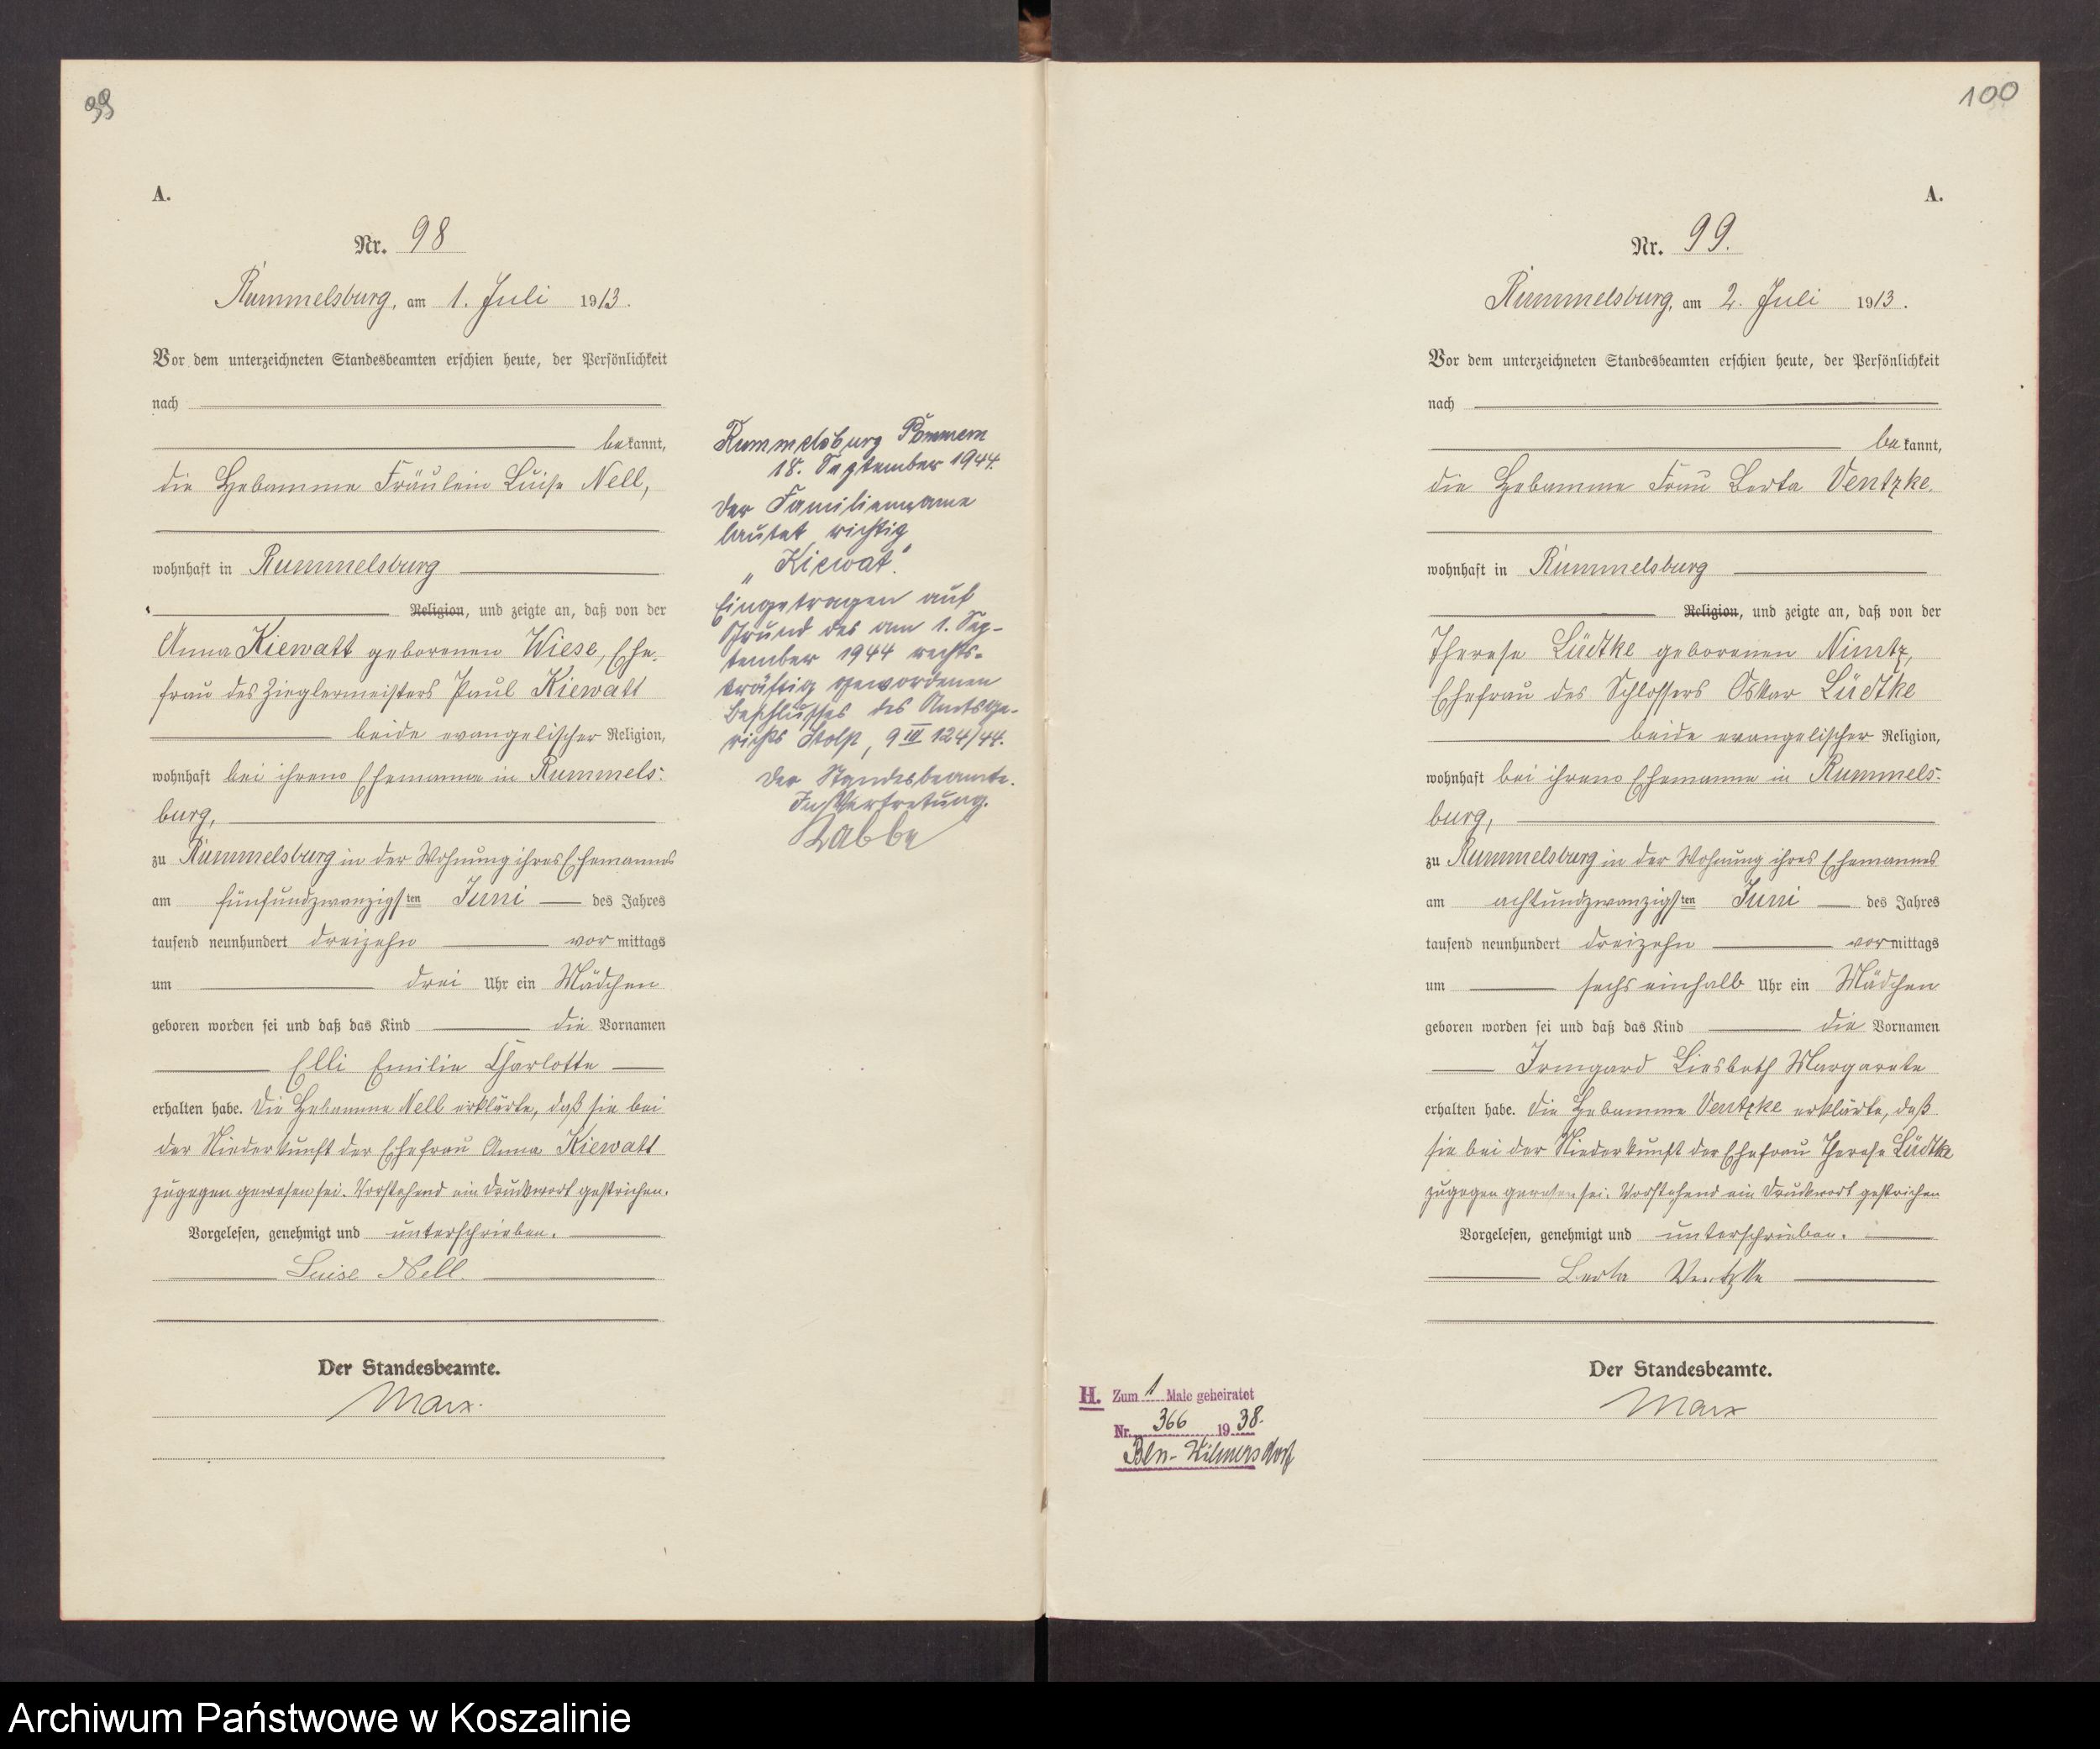 99
A.
Nr. 98
Rummelsburg, am 1. Juli 1913.
Vor dem unterzeichneten Standesbeamten erschien heute, der Persönlichkeit
nach
bekannt,
die Hebamme Fräulein Luise Nell,
wohnhaft in Rummelsburg
Religion, und zeigte an, daß von der
Anna Kiewatt geborenen Wiese, Ehe-
frau des Zieglermeisters Paul Kiewatt
beide evangelischer Religion,
wohnhaft bei ihrem Ehemanne in Rummels-
burg,
zu Rummelsburg in der Wohnung ihres Ehemannes
am fünfundzwanzigsten Juni des Jahres
tausend neunhundert dreizehn vormittags
um drei Uhr ein Mädchen
geboren worden sei und daß das Kind die Vornamen
Elli Emilie Charlotte
erhalten habe. Die Hebamme Nell erklärte, daß sie bei
der Niederkunft der Ehefrau Anna Kiewatt
zugegen gewesen sei. Vorstehend ein Druckwort gestrichen.
Vorgelesen, genehmigt und unterschrieben.
Luise Nell.
Der Standesbeamte.
Marx.
Rummelsburg Pommern
18. September 1944.
Der Familienname
lautet richtig
„Kiewat".
Eingetragen auf
Grund des am 1. Sep-
tember 1944 rechts-
kräftig gewordenen
Beschlusses des Amtsge-
richts Stolp, 9 III 124/44.
Der Standesbeamte.
In Vertretung.
Rabbe
100
A.
Nr. 99.
Rummelsburg, am 2. Juli 1913.
Vor dem unterzeichneten Standesbeamten erschien heute, der Persönlichkeit
nach
bekannt,
die Hebamme Frau Berta Ventzke,
wohnhaft in Rummelsburg
Religion, und zeigte an, daß von der
Therese Lüdtke geborenen Nimtz,
Ehefrau des Schlossers Oskar Lüdtke
beide evangelischer Religion,
wohnhaft bei ihrem Ehemanne in Rummels-
burg,
zu Rummelsburg in der Wohnung ihres Ehemannes
am achtundzwanzigsten Juni des Jahres
tausend neunhundert dreizehn vormittags
um sechs einhalb Uhr ein Mädchen
geboren worden sei und daß das Kind die Vornamen
Irmgard Liesbeth Margarete
erhalten habe. Die Hebamme Ventzke erklärte, daß
sie bei der Niederkunft der Ehefrau Therese Lüdtke
zugegen gewesen sei. Vorstehend ein Druckwort gestrichen
Vorgelesen, genehmigt und unterschrieben.
Berta Ventzke
Der Standesbeamte.
Marx
H. Zum 1 Male geheiratet
Nr. 366 1938.
Bln-Wilmersdorf
Archiwum Państwowe w Koszalinie